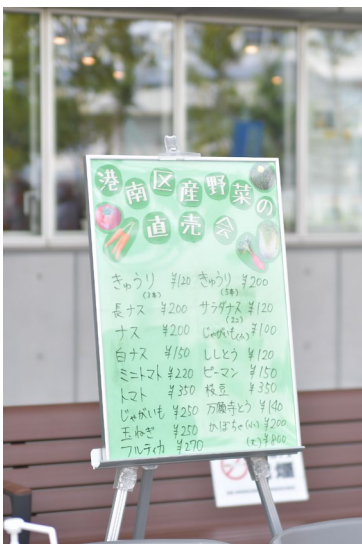 港南区産野菜の
直売会
きゅうり ¥120
(2本)
長ナス ¥200
ナス ¥200
白ナス ¥150
ミニトマト ¥220
トマト ¥350
じゃがいも ¥250
玉ねぎ ¥250
フルティカ ¥270
きゅうり ¥200
(5本)
サラダナス ¥120
(2コ)
じゃがいも(小) ¥100
ししとう ¥120
ピーマン ¥150
枝豆 ¥350
万願寺とう ¥140
かぼちゃ(小) ¥200
(大) ¥800